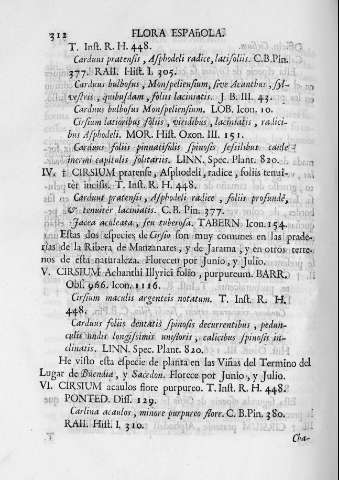 312 FLORA ESPAñOLA.
T. Inst. R. H. 448.
Carduus pratensis, Asphodeli radice, latifoliis. C.B.Pin.
377. RAII. Hist. I. 305.
Carduus bulbosus, Monspeliensium, sive Acanthus, syl-
vestris, quibusdam, foliis laciniatis. J. B. III. 43.
Carduus bulbosus Monspeliensium. LOB. Icon. 10.
Cirsium latioribus foliis, viridibus, laciniatis, radici-
bus Asphodeli. MOR. Hist. Oxon. III. 151.
Carduus foliis pinnatifidis spinosis sessilibus caule
inermi capitulis solitariis. LINN. Spec. Plant. 820.
IV. † CIRSIUM pratense, Asphodeli, radice, foliis tenui-
tèr incisis. T. Inst. R. H. 448.
Carduus pratensis, Asphodeli radice, foliis profundè,
& tenuitèr laciniatis. C. B. Pin. 377.
Jacea aculeata, seu tuberosa. TABERN. Icon. 154.
Estas dos especies de Cirsio son muy comunes en las prade-
rías de la Ribera de Manzanares, y de Jarama, y en otros terre-
nos de esta naturaleza. Florecen por Junio, y Julio.
V. CIRSIUM Achanthi Illyrici folio, purpureum. BARR.
Obs. 966. Icon. 1116.
Cirsium maculis argenteis notatum. T. Inst. R. H.
448.
Carduus foliis dentatis spinosis decurrentibus, pedun-
culis undis longissimis unifloris, calicibus spinosis in-
clinatis. LINN. Spec. Plant. 820.
He visto esta especie de planta en las Viñas del Termino del
Lugar de Buendia, y Sacedon. Florece por Junio, y Julio.
VI. CIRSIUM acaulos flore purpureo. T. Inst. R. H. 448.
PONTED. Diss. 129.
Carlina acaulos, minore purpureo flore. C. B. Pin. 380.
RAII. Hist. I. 310.
Cha-